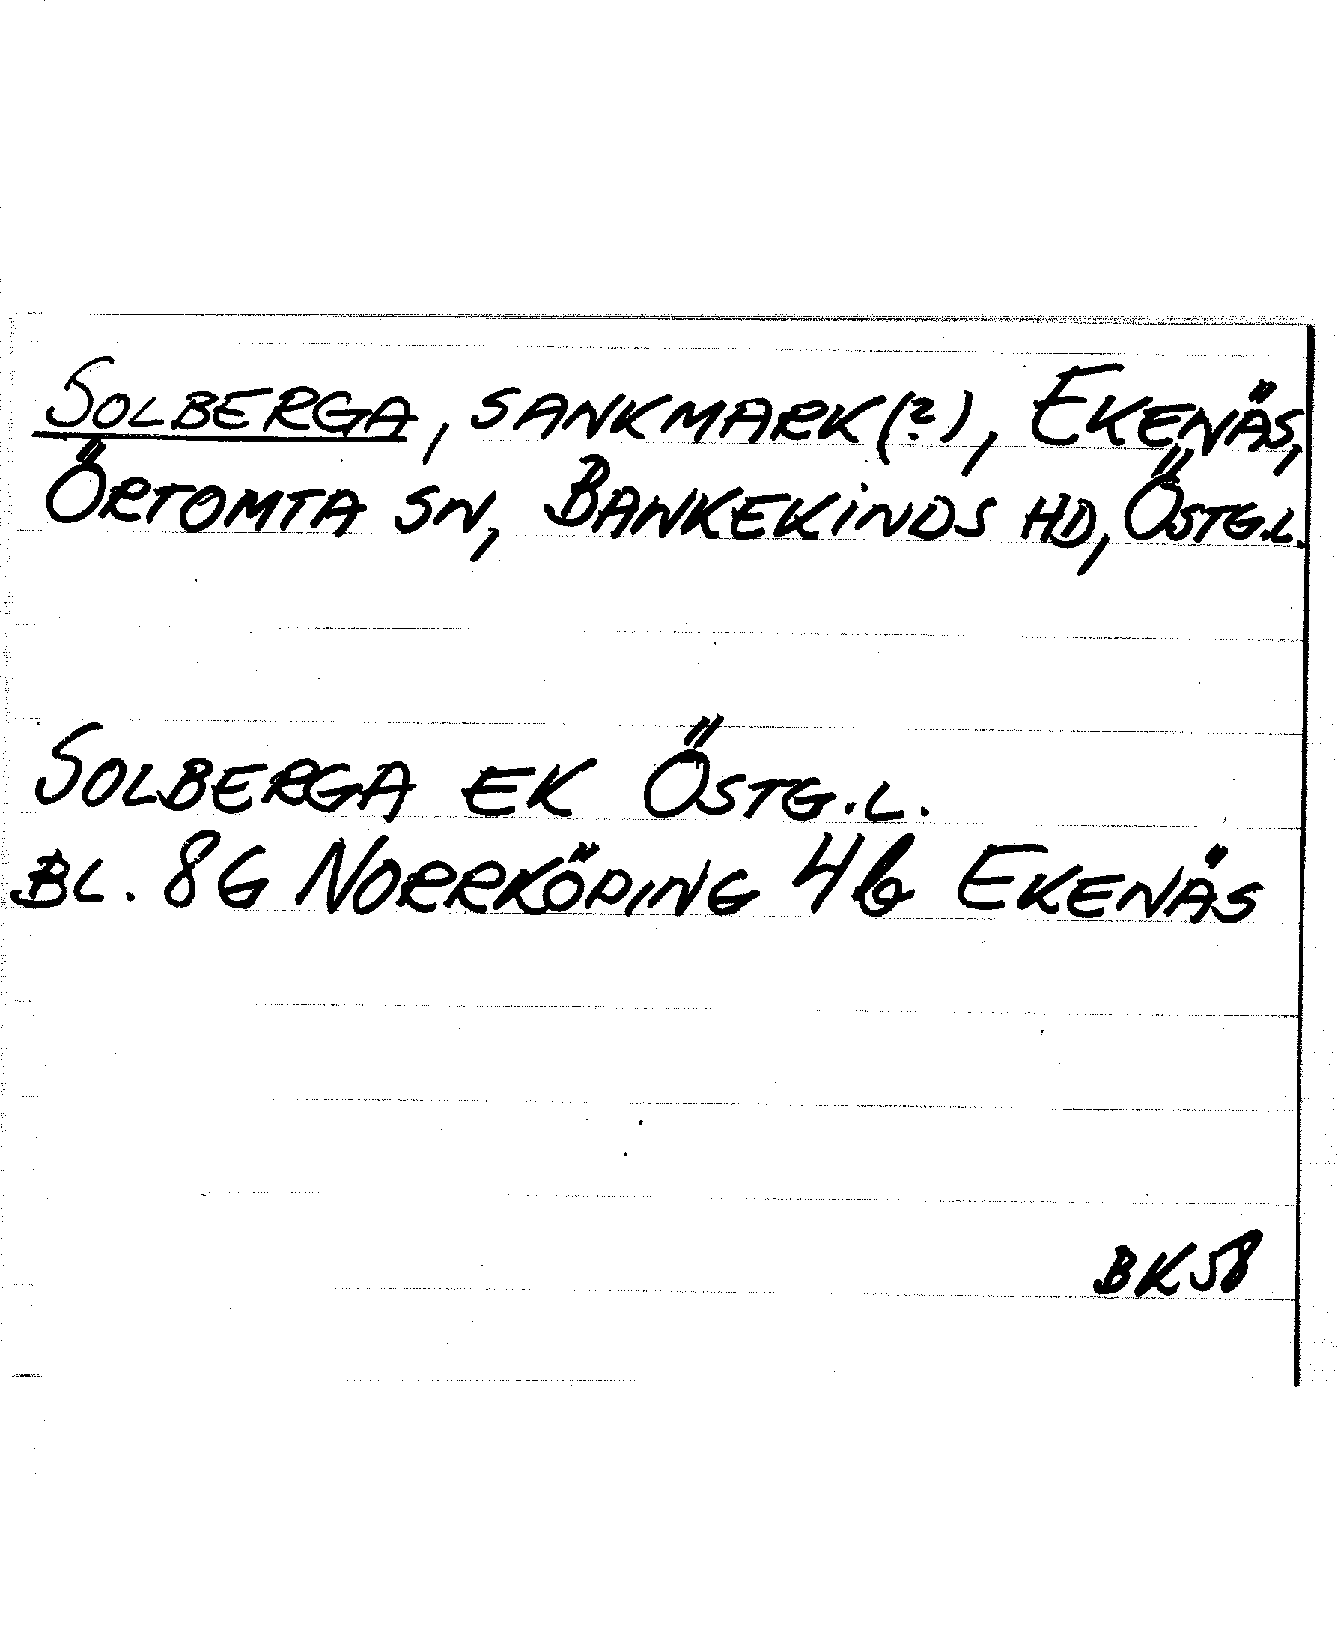 SOLBERGA, SANKMARK(?), EKENÄS,
ÖRTOMTA SN, BANKEKINDS HD, ÖSTG.L.
SOLBERGA EK ÖSTG.L.
BL. 8G NORRKÖPING 4b EKENÄS
BK58